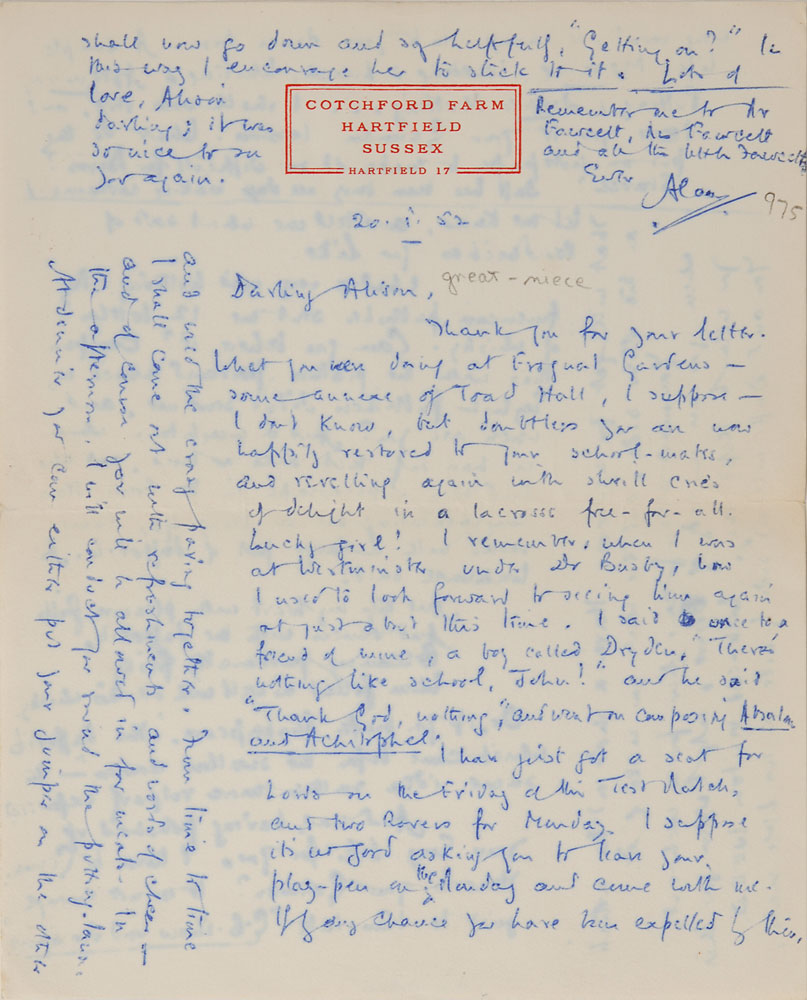 COTCHFORD FARM
HARTFIELD
SUSSEX
HARTFIELD 17
20. i. 52
Darling Alison,
great-niece
Thank you for your letter.
What you were doing at Frognal Gardens —
some annexe of Toad Hall, I suppose —
I don't know, but doubtless you are now
happily restored to your school-mates,
and revelling again with shrill cries
of delight in a lacrosse free-for-all.
Lucky girl! I remember, when I was
at Westminster under Dr Busby, how
I used to look forward to seeing him again
at just about this time. I said once to a
friend of mine, a boy called Dryden, "There's
nothing like school, John!" and he said
"Thank God, nothing", and went on composing Absalom
and Achitophel.
I have just got a seat for
Lords on the Friday of the Test Match,
and two Rovers for Monday. I suppose
it's no good asking you to leave your
play-pen on the Monday and come with me.
If by any chance you have been expelled by then,
and weed the crazy paving together. From time to time
I shall come out with refreshments and words of cheer —
and of course you will be allowed in for meals. In
the afternoon I will conduct you round the putting-lawn.
At dinner you can either put your jumper on the other
shall now go down and say helpfully, "Getting on?" In
this way I encourage her to stick to it. Lots of
love, Alison
darling; it was
so nice to see
you again.
Remember me to Mr
Fawcett, Mrs Fawcett
and all the little Fawcetts
Ever
Alan
975